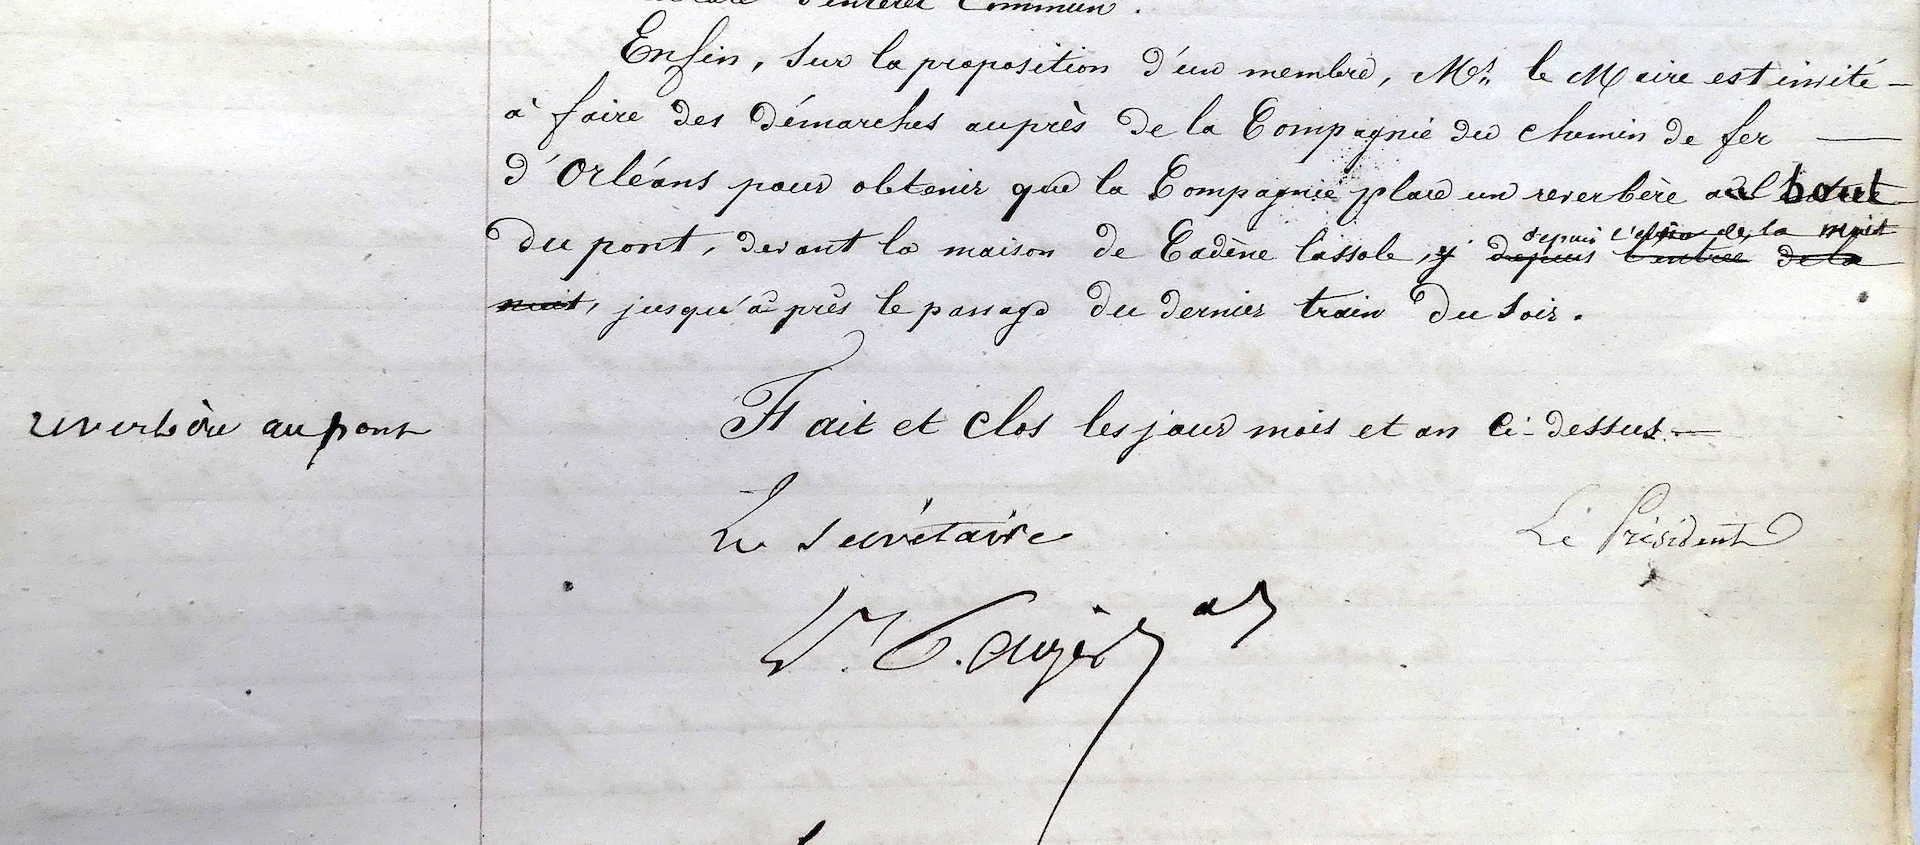 d'intérêt Commun.
Enfin, sur la proposition d'un membre, Mr. le Maire est invité
à faire des démarches auprès de la Compagnie du chemin de fer
d'Orléans pour obtenir que la Compagnie place un reverbère au bout
depuis de la nuit
du pont, devant la maison de Cadène Cassole, depuis l'entrée de la
nuit, jusqu'après le passage du dernier train du soir.
reverbère au pont
Fait et clos les jour mois et an ci-dessus.
Le secrétaire
Le Président